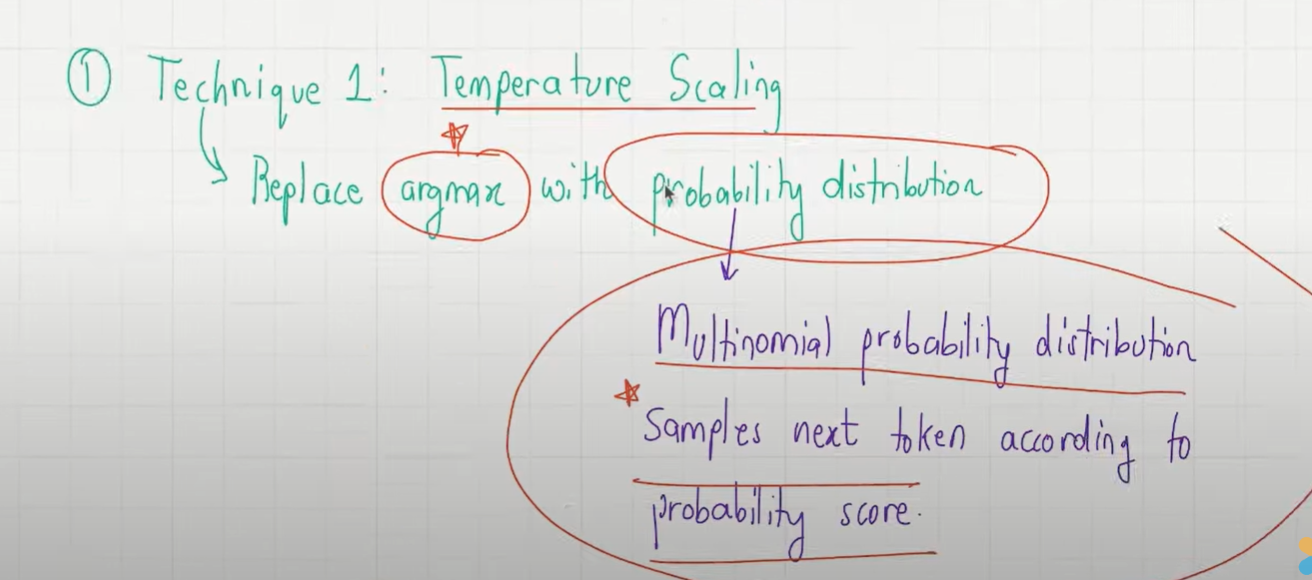 ① Technique 1: Temperature Scaling
Replace argmax with probability distribution
Multinomial probability distribution
Samples next token according to
probability score.